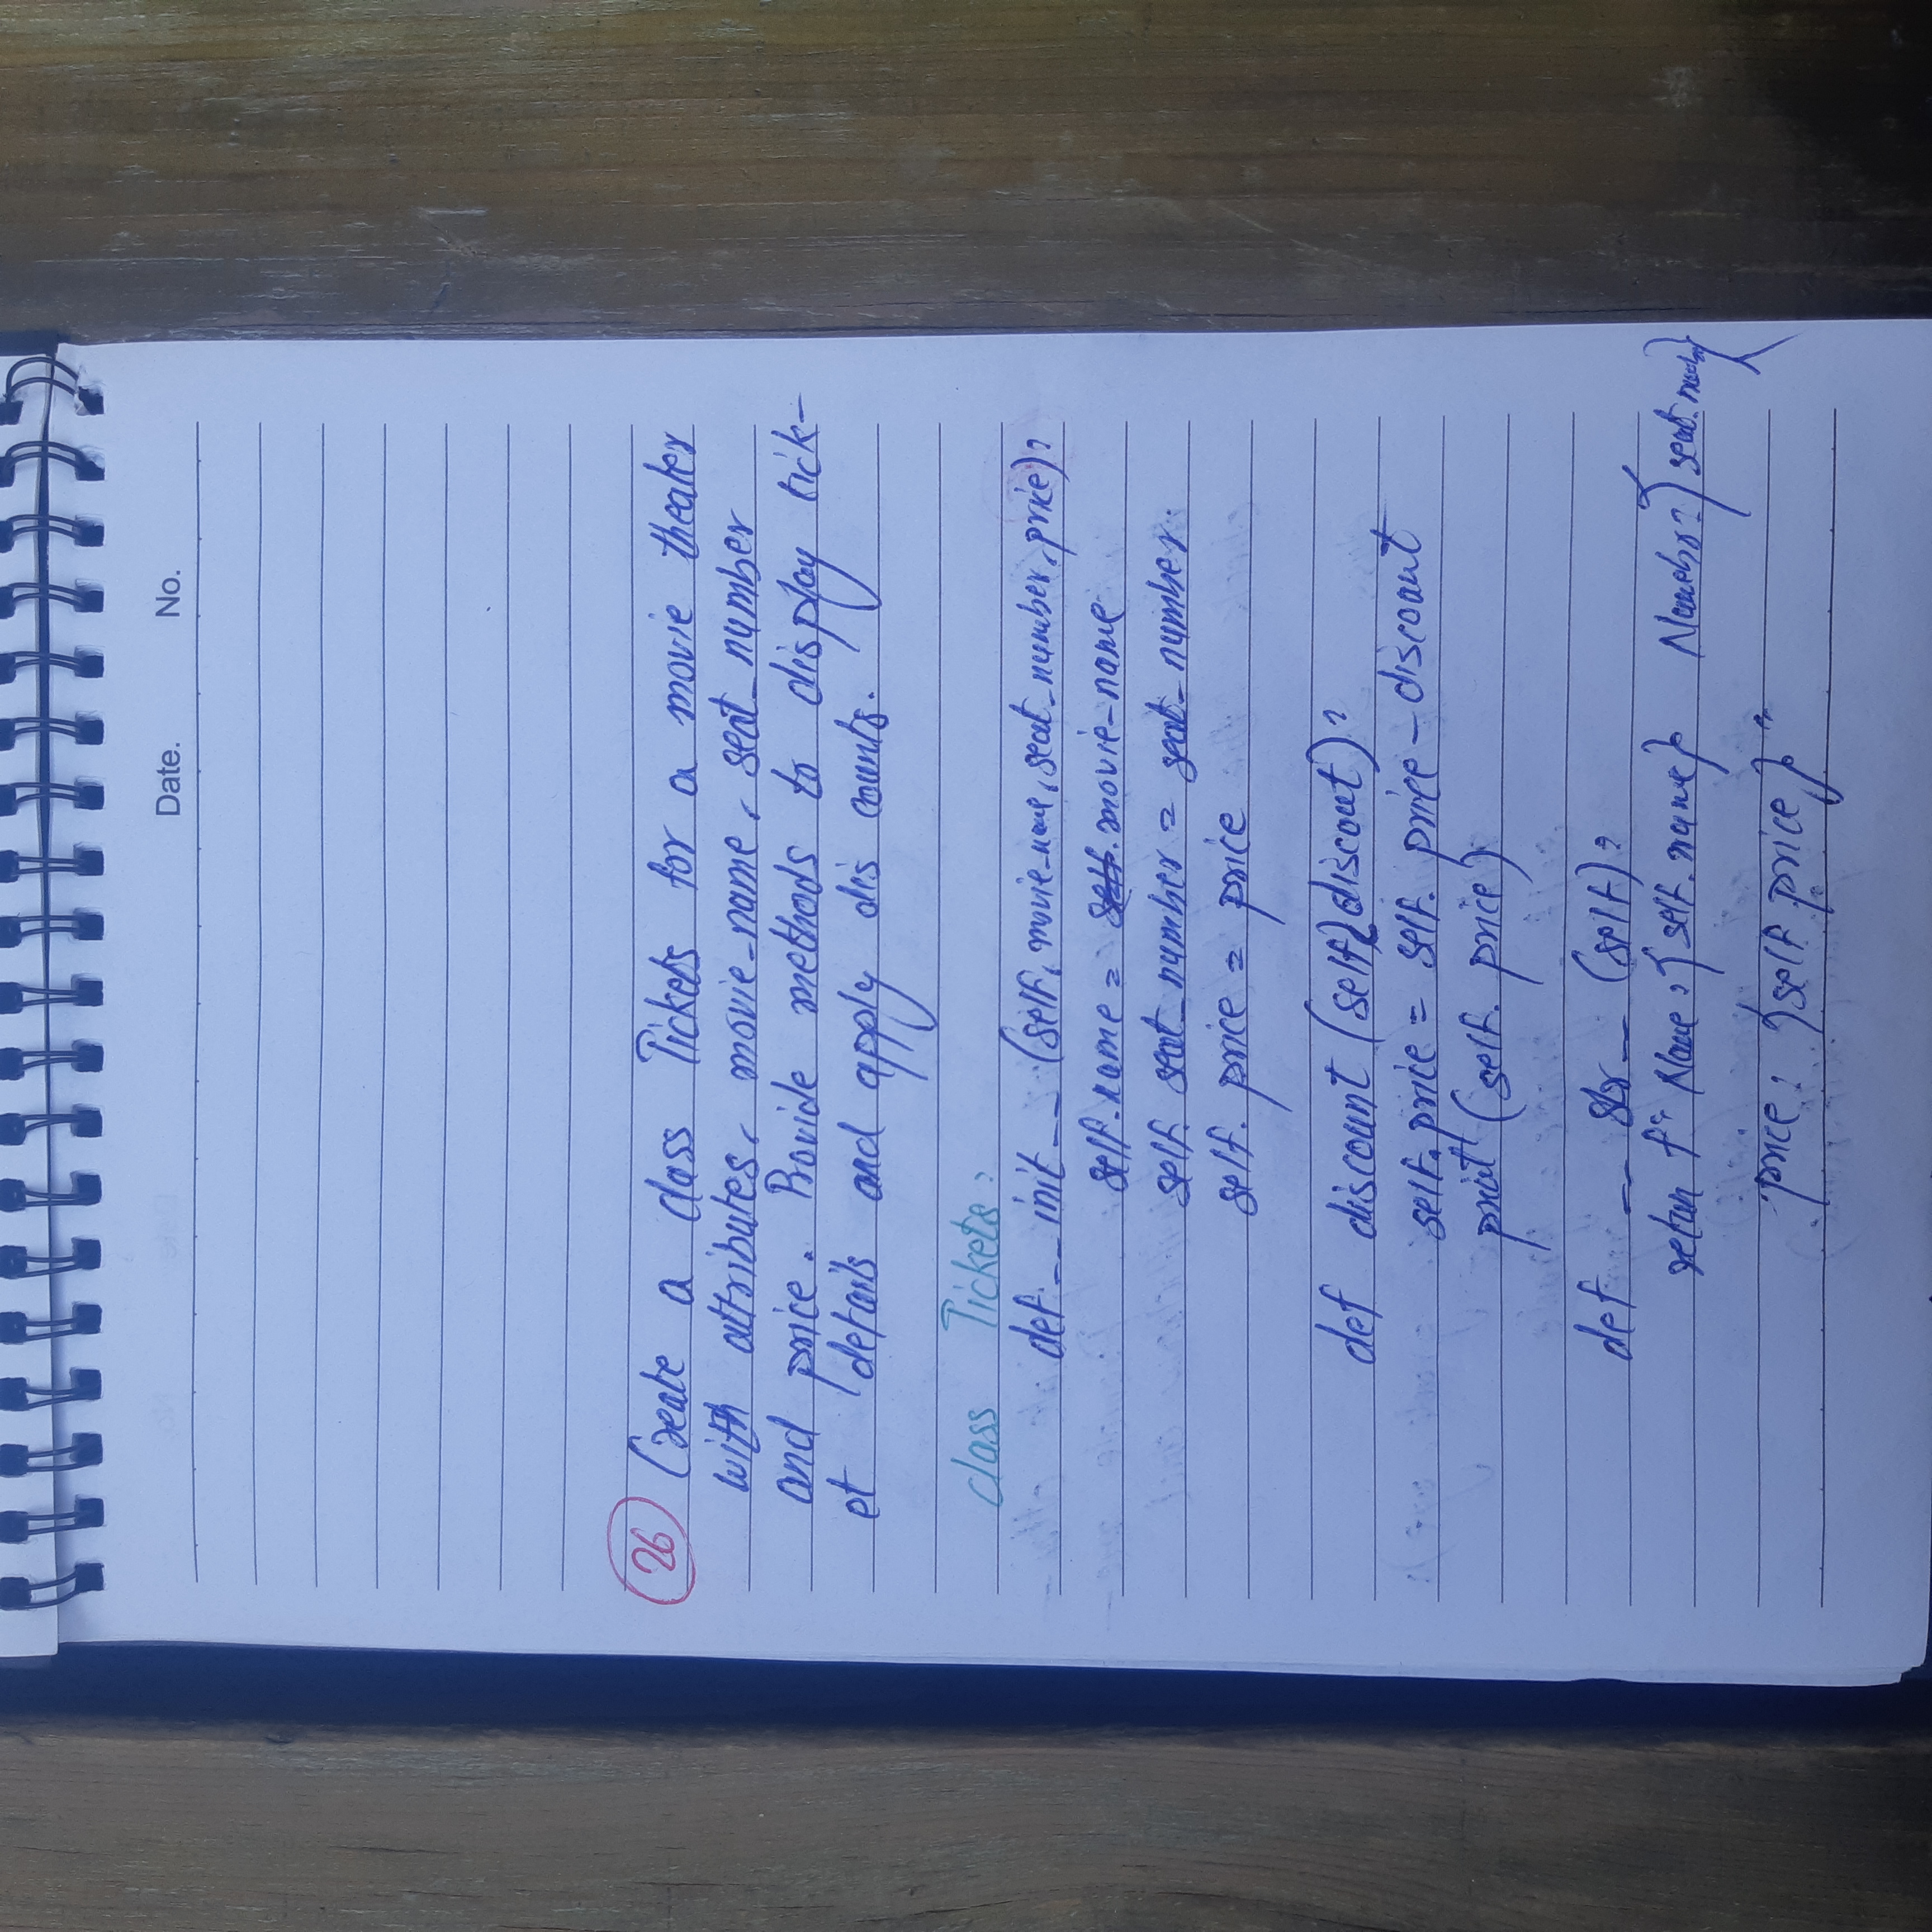 Date. No.
26 Create a class Tickets for a movie theater
with attributes, movie_name, seat_number
and price. Provide methods to display tick-
et details and apply dis counts.
class Tickets:
def __init__ (self, movie_name, seat_number, price):
self.name = self.movie_name
self. seat_number = seat_number
self. price = price
def discount (self, discout):
self. price = self. price - discount
print (self. price)
def __str__ (self):
retun f" Name: {self.name}
price: {self.price}"